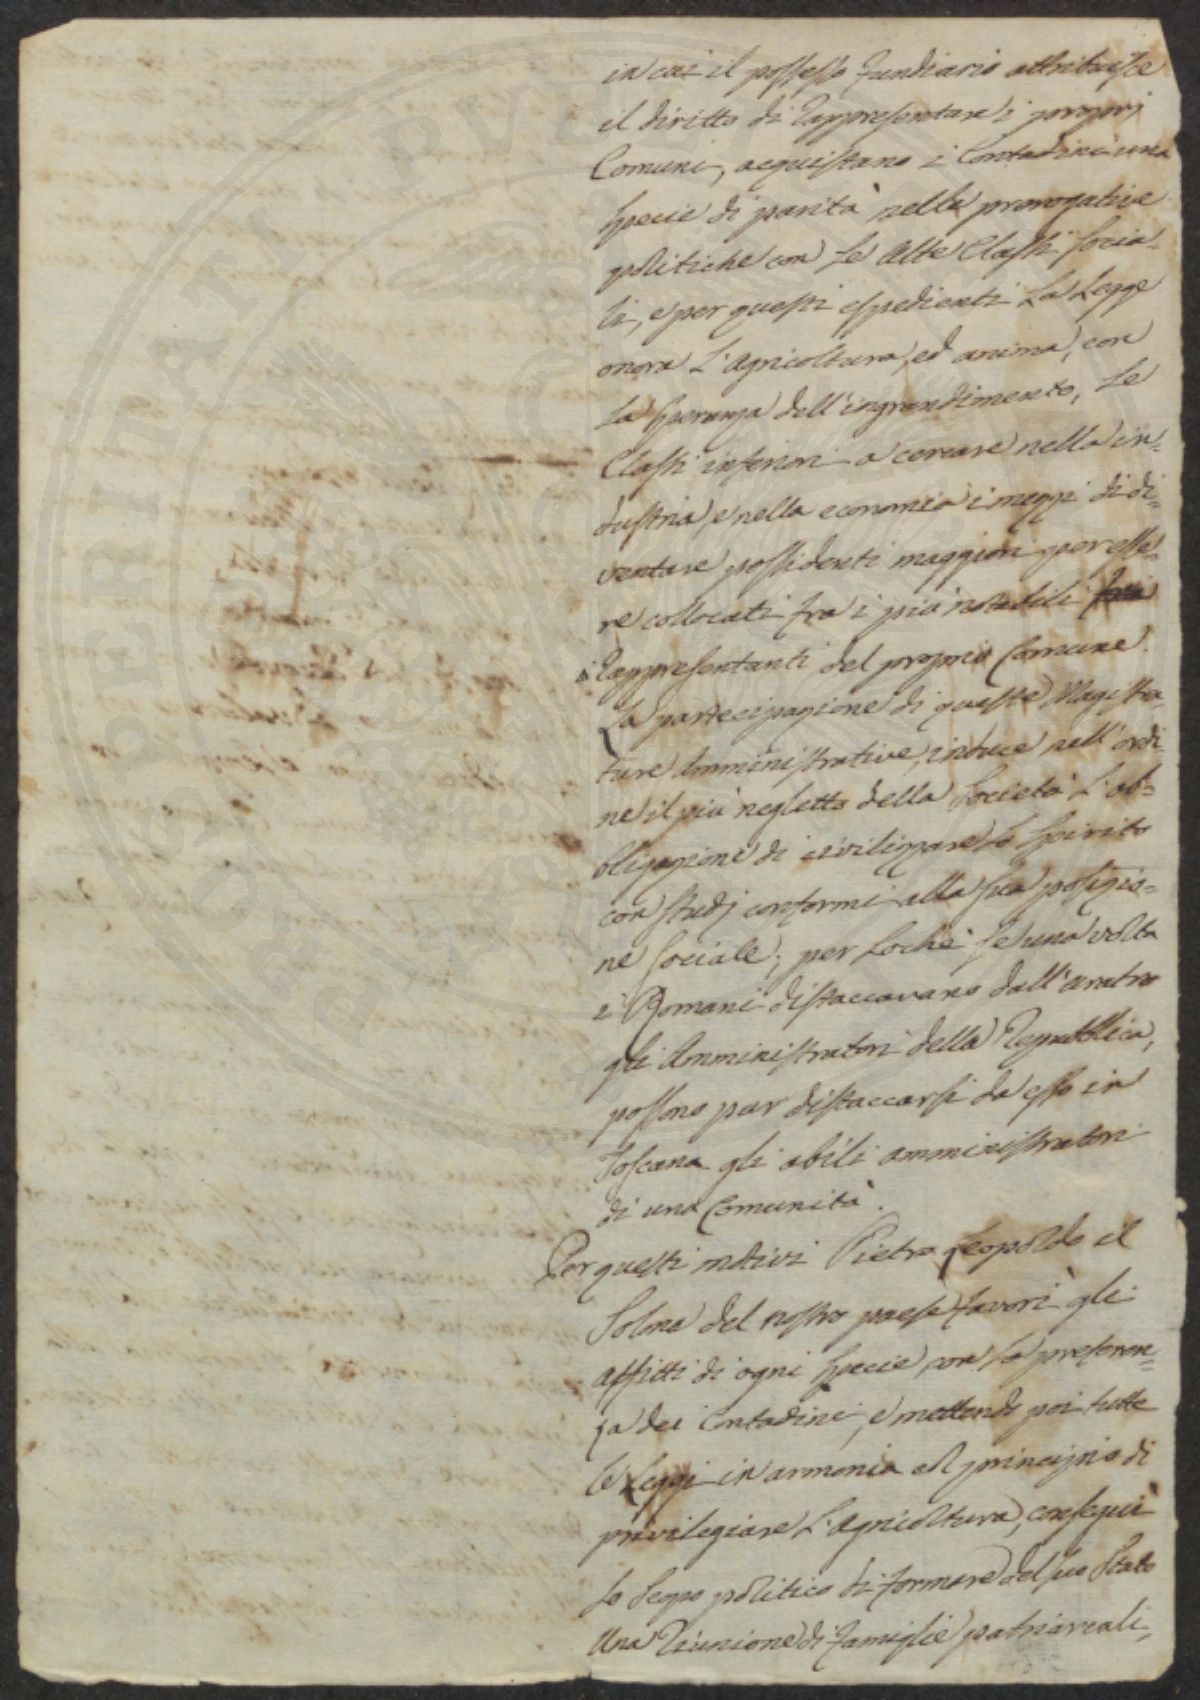 in cui il possesso fundiario attribuisce
il diritto di rappresentare i proprj
Comuni, acquistano i Contadini una
specie di parità nelle prerogative
politiche con le alte Classi socia-
li, e per questi espedienti la Legge
onora l'Agricoltura, ed anima, con
la speranza dell'ingrandimento, le
Classi inferiori a cercare nella in-
dustria, e nella economia i mezzi di di-
ventare possidenti maggiori per esse-
re collocati fra i più notabili
i Rappresentanti del proprio Comune.
La partecipazione di queste Magistra-
ture Amministrative, induce nell'ordi-
ne il più negletto della Società l'ob-
bligazione di civilizzare lo Spirito
con studj conformi alla sua posizio-
ne sociale; per loché se una volta
i Romani distaccavano dall'aratro
gli Amministratori della Repubblica,
possono pur distaccarsi da esso in
Toscana gli abili amministratori
di una Comunità.
Per questi motivi Pietro Leopoldo il
Solone del nostro paese favorì gli
affitti di ogni specie, con la preferen-
za dei Contadini, e mettendo poi tutte
le Leggi in armonia col principio di
privilegiare l'Agricoltura, conseguì
lo scopo politico di formare del suo Stato
una Riunione di famiglie patriarcali,